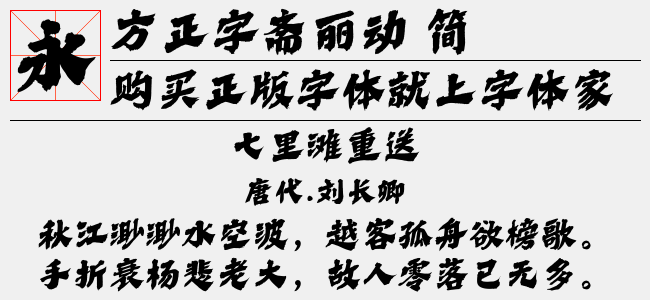 永
方正字斋丽动 简
购买正版字体就上字体家
七里滩重送
唐代.刘长卿
秋江渺渺水空波，越客孤舟欲榜歌。
手折衰杨悲老大，故人零落已无多。